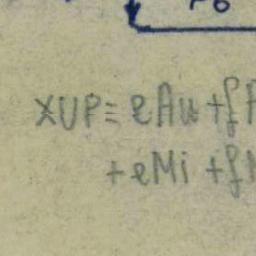 XUP = eAu + f
+ eMi + f